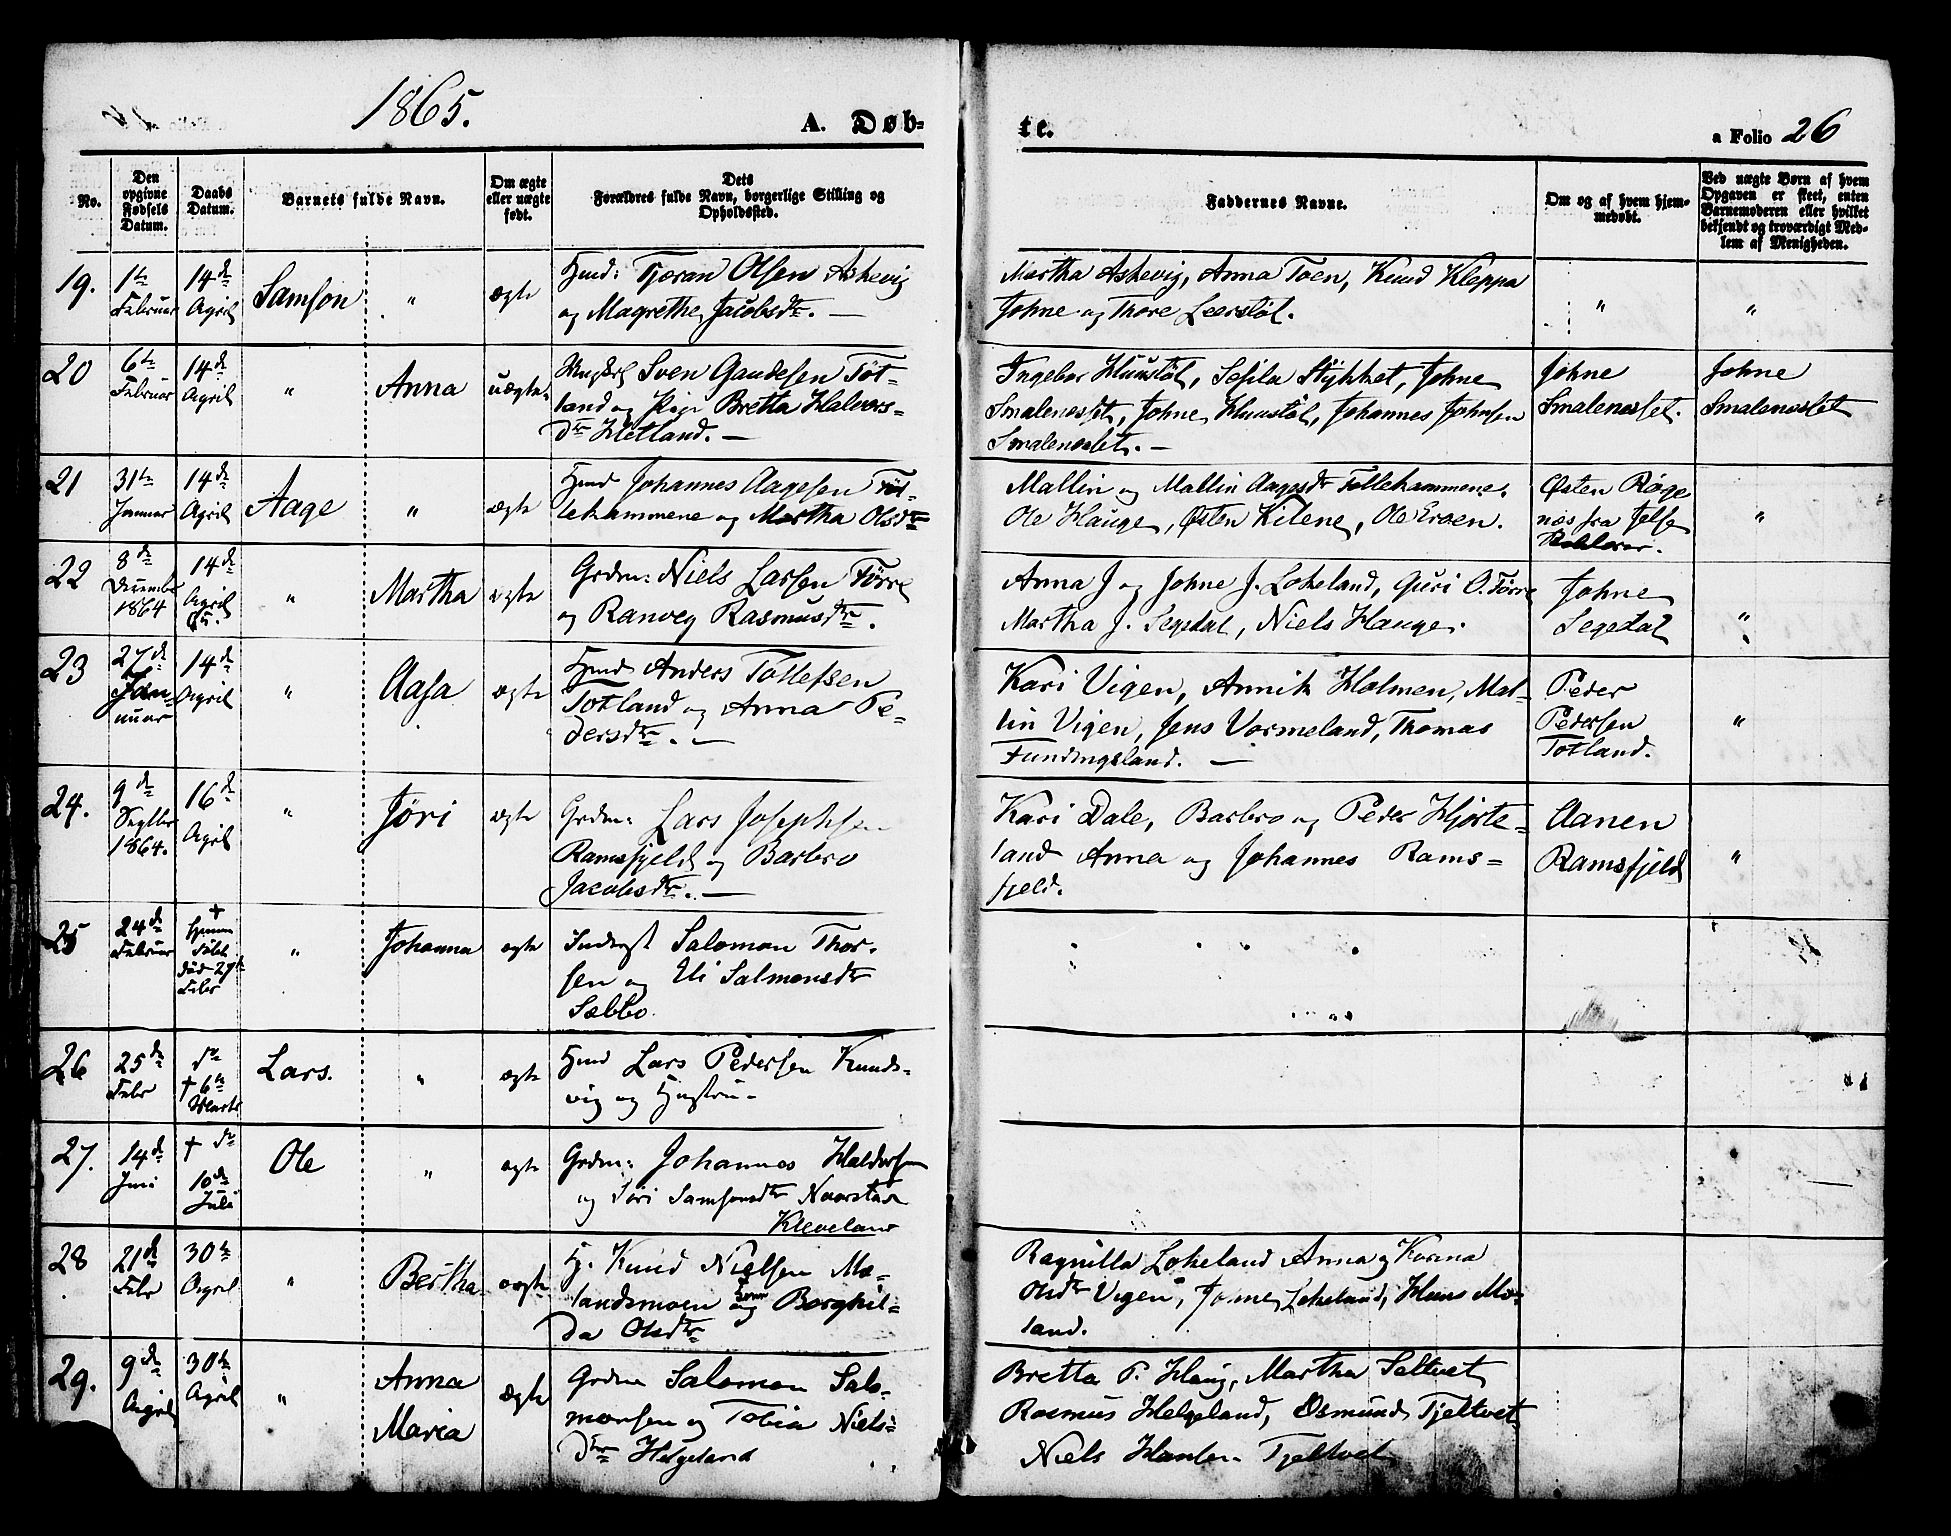 1865.
A. Døb-
te.
a Folio 26
No.
Den
opgivne
Fødsels
Datum.
Daabs
Datum.
Barnets fulde Navn.
Om ægte
eller uægte
født.
Dets
Forældres fulde Navn, borgerlige Stilling og
Opholdssted.
Faddernes Navne.
Om og af hvem hjem-
medøbt.
Ved uægte Børn af hvem
Opgaven er skeet, enten
Barnemoderen eller hvilket
bekjendt og troværdigt Med-
lem af Menigheden.
19.
1te
Februar
14de
April
Samson
"
ægte
Hmd: Tjøran Olsen Askevig
og Magrethe Jacobsdtr. —
Martha Askevig, Anna Toen, Knud Kleppa
Johne og Thore Leerstøl.
"
"
20
6te
Februar
14de
April
"
Anna
uægte
Ungkrl Sven Gaudesen Tøt-
land og Pige Bretta Halvors-
dtr Hetland. —
Ingebor Huustøl, Sesila Stykket, Johne
Smalenesset, Johne Huustøl, Johannes Johnsen
Smalenesset. —
Johne
Smalenesset.
Johne
Smalenesset
21
31te
Januar
14de
April
Aage
"
ægte
Hmd Johannes Aagesen Tøl-
lekammene og Martha Olsdtr
Mallin og Mallin Aagesdtr Tøllekammene.
Ole Hauge, Østen Kilene, Ole Eroen.
Østen Røge
næs fra Jelse
"
22
8de
December
1864
14de
April
"
Martha
ægte
Grdm: Niels Larsen Tørre
og Ranveg Rasmusdtr.
Anna J og Johne J. Lokeland, Guri O. Tørre
Martha J. Segedal, Niels Hauge.
Johne
Segedal
"
23
27de
Jan-
nuar
14de
April
"
Aasa
ægte
Hmd Anders Tollefsen
Totland og Anna Pe-
dersdtr. —
Kari Vigen, Annik Holmen, Mal-
lin Vigen, Jens Vormeland, Thomas
Fundingsland. —
Peder
Pedersen
Totland.
"
24.
9de
Septbr
1864.
16de
April
"
Jøri
ægte
Grdm: Lars Josephsen
Ramsfjeld og Barbro
Jacobsdtr. —
Kari Dale, Barbro og Peder Hjorte-
land Anna og Johannes Rams-
fjeld.
Aanen
Ramsfjeld
"
25
24de
Februar
+
Hjemme
døbt
død 27de
Febr
"
Johanna
ægte
Inderst Salomon Thor-
sen og Eli Salmonsdtr
Sæbbø.
26
25de
Febr
do
+ 6te
Marts
Lars.
"
ægte
Hmd Lars Pedersen Kunds-
vig og Hustru -
27.
14de
Juni
+ do
10de
Juli
Ole
"
ægte
Grdm: Johannes Haldorsen
og Jøri Samsonsdtr Naarstad
Kleveland
28
21de
Febr
30te
April
"
Bertha
ægte
H. Knud Nielsen Mæ-
landsmoen og Borghil-
da Olsdtr
Ragnilla Lokeland Anna og Korina
Olsdtr Vigen, Johne Lokeland, Hans Mæ-
land.
29.
9de
April
30te
April
"
Anna
Maria
ægte
Grdm Salomon Salo-
monsen og Tobia Niels-
dtr Helgeland
Bretta P. Haug, Martha Saltvet
Rasmus Helgeland, Osmund Tjeltvet
Niels Hansen Tjeltvet